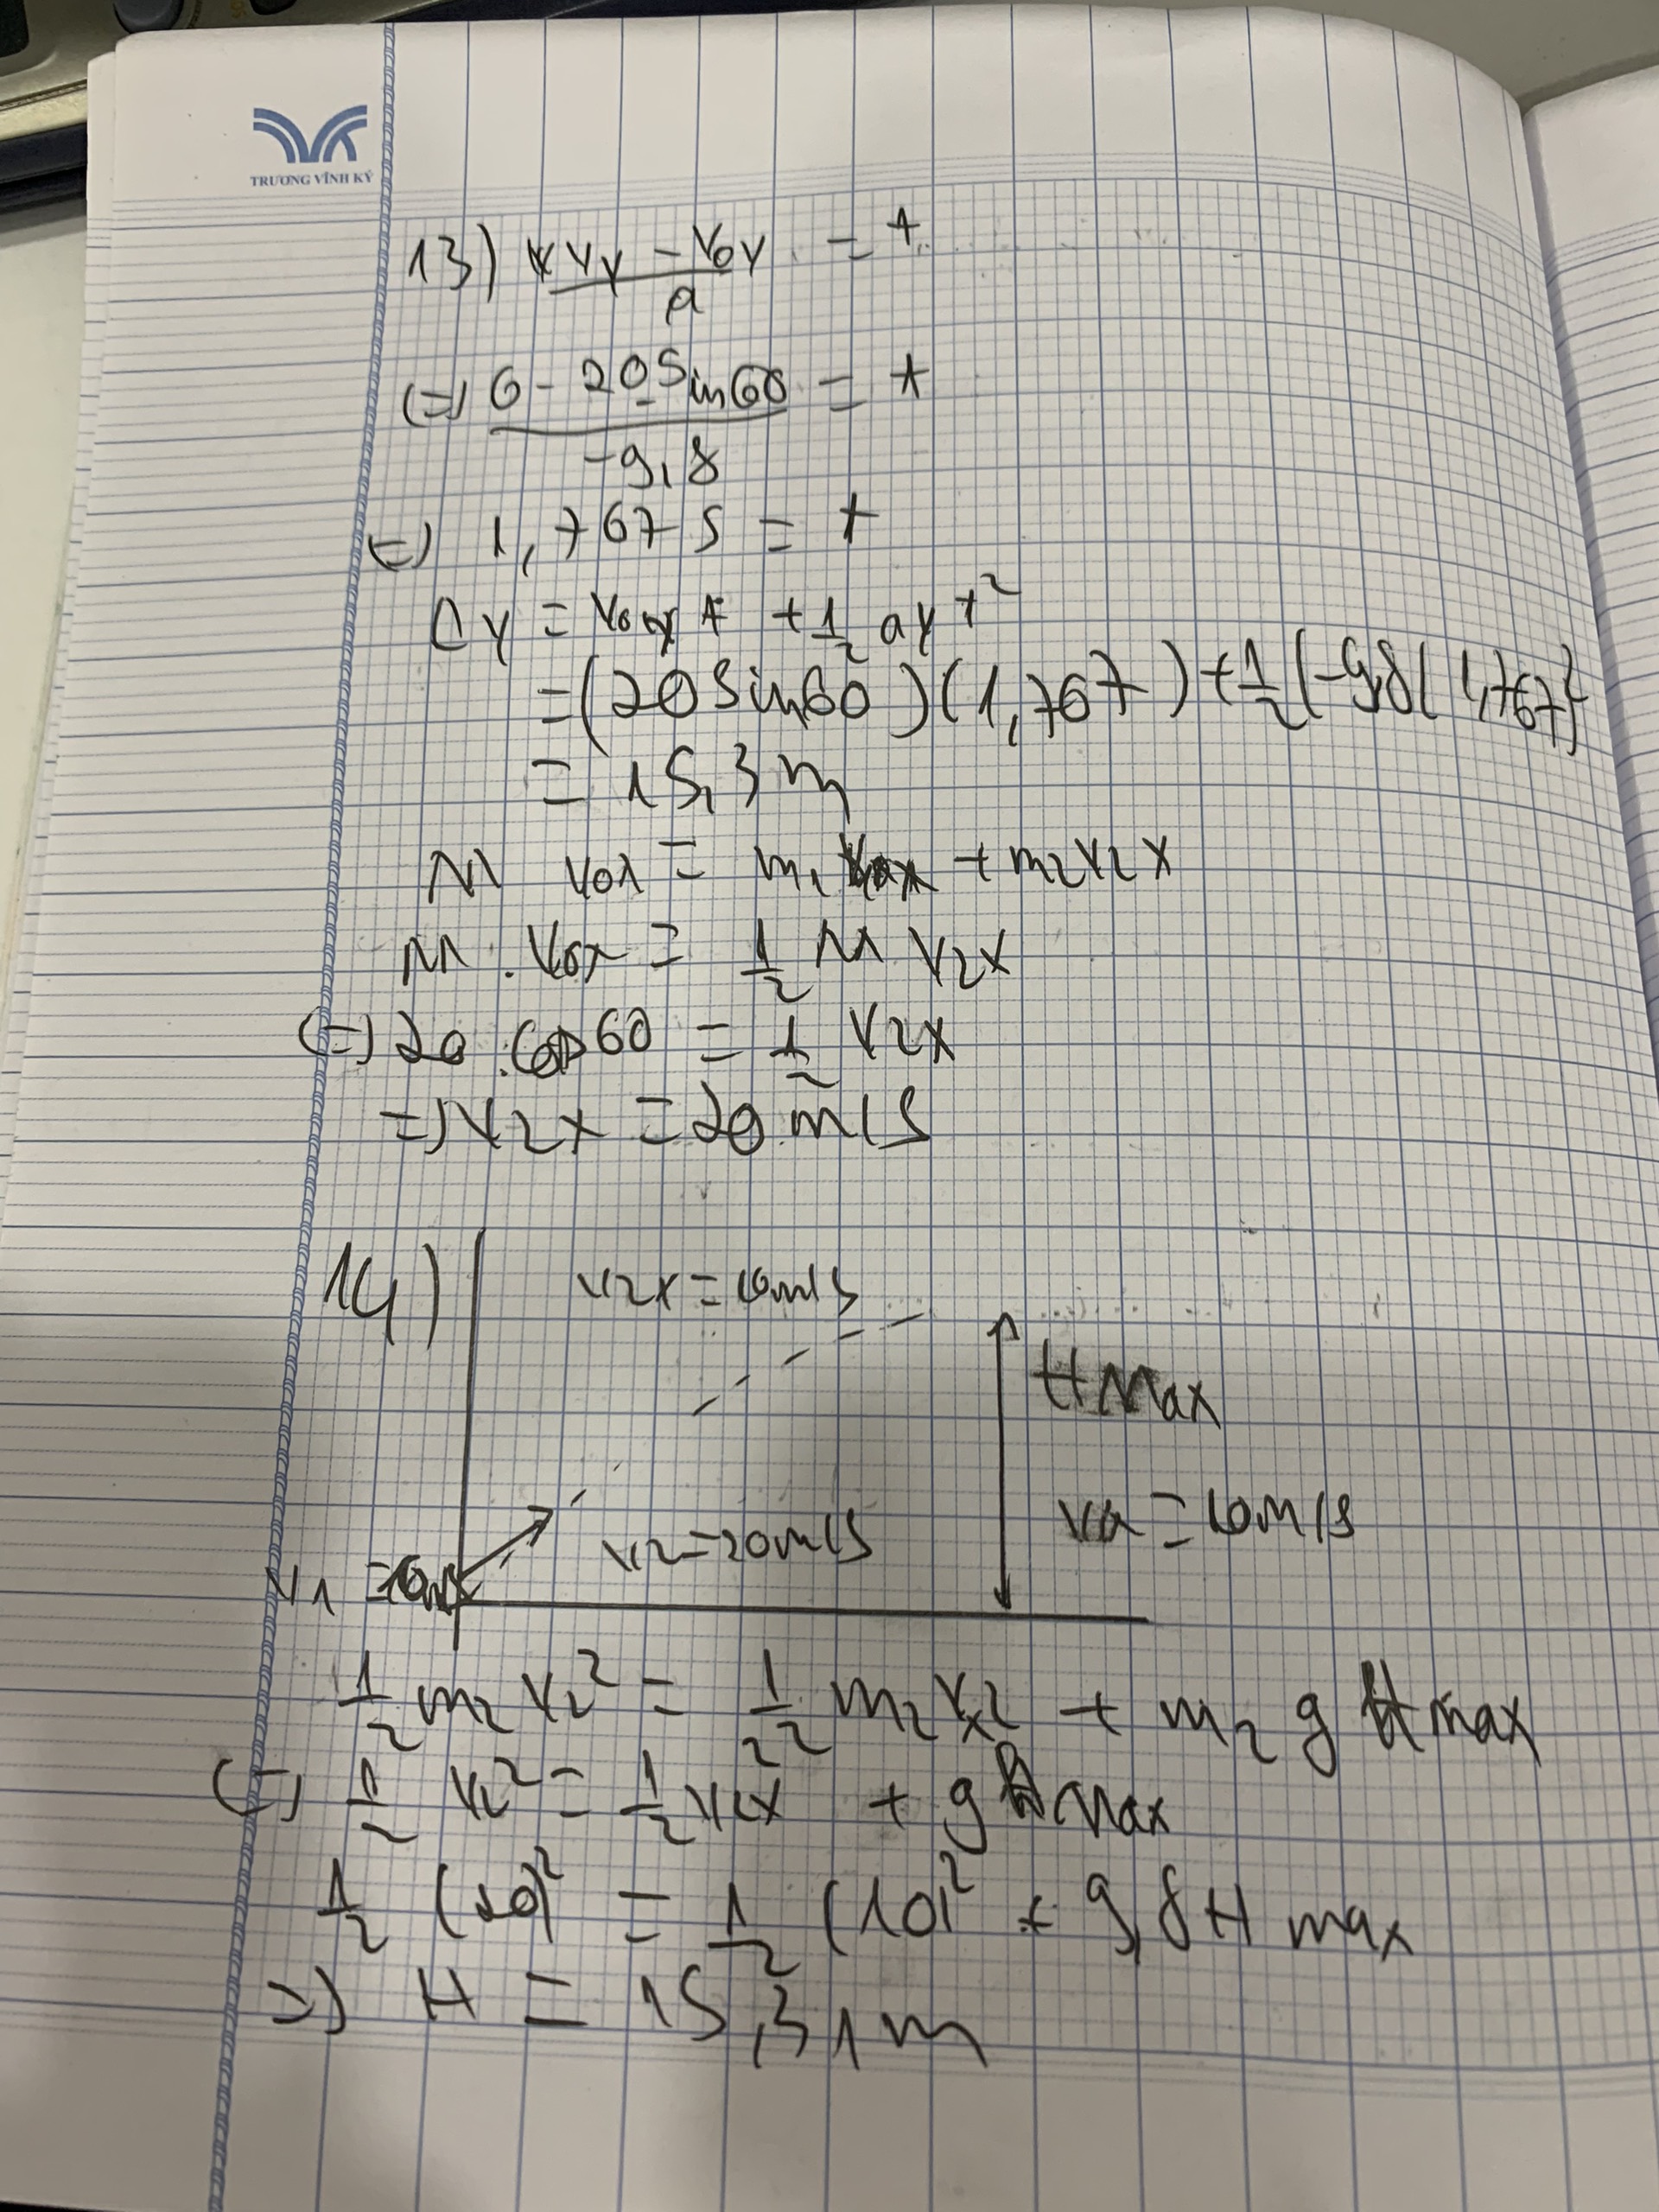 TRƯƠNG VĨNH KÝ
13) Vy - V0y / a = t
(=) 0 - 20 Sin60 / -9,8 = t
(=) 1,767 s = t
Δy = V0y t + 1/2 ay t²
= (20 Sin60) (1,767) + 1/2 (-9,8(1,767)²
= 15,3 m
M V0x = m1 + m2 V2x
M . V0x = 1/2 M V2x
(=) 20 . Cos 60 = 1/2 V2x
=) V2x = 20 m/s
14) V2x = 10m/s
H Max
V2 = 20m/s
Va = 10m/s
V1 =
1/2 m2 V2² = 1/2 m2 Vx2² + m2 g Hmax
(=) 1/2 V2² = 1/2 V2x + g H Max
1/2 (20)² = 1/2 (10)² + 9,8 H max
=) H = 15,31 m